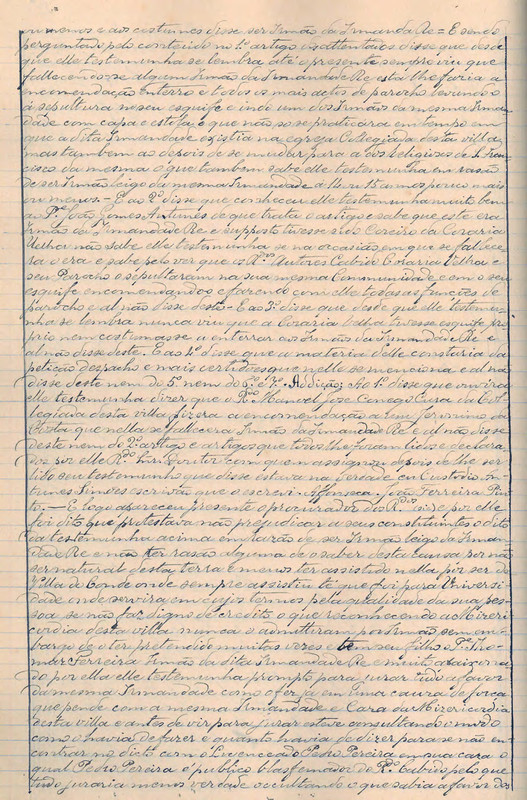 ou menos e aos costumes disse ser Irmão da Irmandade Re = E sendo
perguntado pelo conteúdo no 1º artigo disse que desde
que elle testemunha se lembra até o presente sempre viu que
fallecendo se algum Irmão da Irmandade Re esta lhe fazia a
encomendação enterro e todos os mais actos de parocho levando o
á sepultura no seu esquife e indo um dos Irmãos da mesma Irman
dade com capa e estola e que não só se praticara em tempo em
que a dita Irmandade existia na egreja Collegiada desta villa
mas tambem ao depois de se mudar para a dos religiosos de S. Fran
cisco da mesma o que tambem sabe elle testemunha em rasão
de ser Irmão leigo da mesma Irmandade á 14 ou 15 annos pouco mais
ou menos. - E ao 2º disse que conheceu elle testemunha muito bem
a Pe. João Gomes Antunes de que trata o artigo e sabe que este era
Irmão da Irmandade Re e supposto tivesse sido Coreiro da Coraria
Velha não sabe elle testemunha se na occasião em que se fallece
ra o era e sabe pelo ver que os Rdos Autres Cabido Coraria Velha e
seu Parocho o sepultaram na sua mesma Communidade e com o seu
esquife encomendando o e fazendo com elle todas as funcções de
parocho e al não disse deste - E ao 3º disse que desde que elle testemu
nha se lembra nunca viu que a Coraria Velha tivesse esquife pro
prio nem costumasse a enterrar aos Irmãos da Irmandade Re e
al não disse deste. E ao 4º disse que a materia delle constaria da
petição despacho e mais certidões que nelle se menciona e al não
disse deste nem do 5º nem do 6º e 7º. Addição; Ao 1º disse que ouvira
elle testemunha dizer que o Rdo Manoel José Conego Cura da Col
legiada desta villa fizera a encomendação a um Jeronimo da
Costa que nella se fallecera Irmão da Irmandade Re e al não disse
deste nem do 2º artigo e artigos que todos lhe foram lidos e declara
dos por elle Rdo Inquiridor com quem assignou depois de lhe ser
lido seu testemunho que disse estava na verdade eu Custodio An
tunes Simões escrivão que o escrevi - Affonseca - João Ferreira Pin
to. - E logo appareceu presente o procurador dos Rdos e por elle
foi dito que protestava não prejudicar a seus constituintes o dito
da testemunha acima em razão de ser Irmão leigo da Irman
dade Re e não ter rasão alguma de o saber desta causa por não
ser natural desta terra e menos ter assistido nella por ser de
Villa do Conde onde sempre assistiu té que foi para Universi
dade onde servira em cujos termos pela qualidade da sua pes
soa se não faz digno de credito o que reconhecendo a Miseri
cordia desta villa nunca o admittiram por Irmão sem em
bargo de o ter pretendido muitas vezes e tem seu filho o Pe. Tho
maz Ferreira Irmão da dita Irmandade Re e muito apaixona
do por ella elle testemunha prompto para jurar tudo a favor
da mesma Irmandade como o fez já em uma causa de força
que pende com a mesma Irmandade e Casa da Misericordia
desta villa e antes de vir para jurar esteve consultando o modo
como o havia de fazer e quanto havia de dizer para se não en
contrar no dito com o Licenceado Pedro Pereira em sua casa o
qual Pedro Pereira é publico blasfemador do Rdo Cabido pelo que
tudo juraria menos verdade occultando o que sabia a favor dos